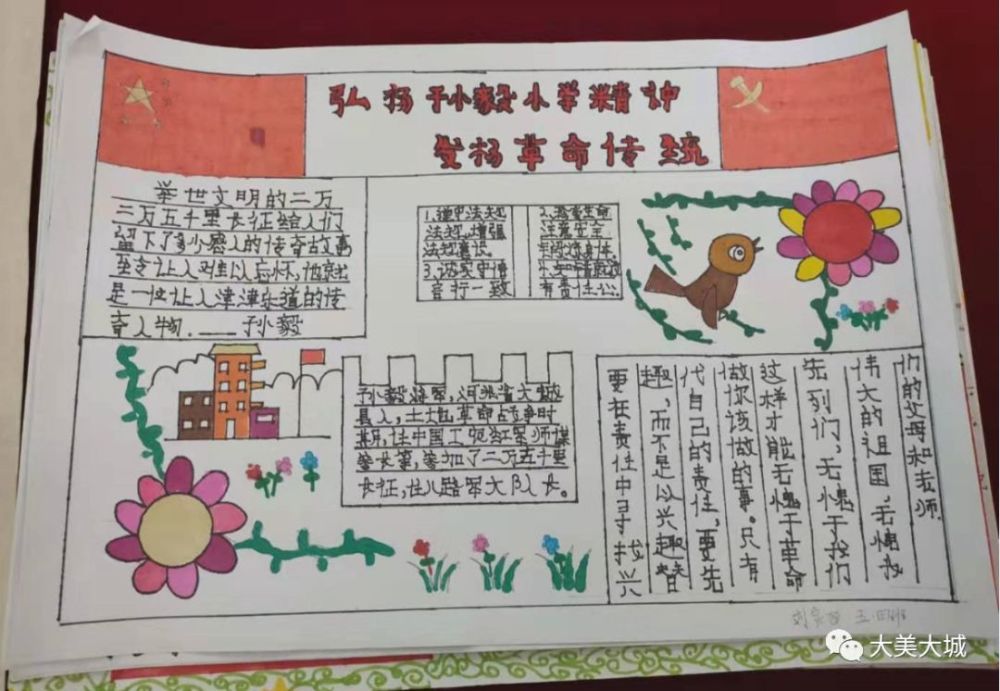 弘扬孙毅小学精神
发扬革命传统
举世文明的二万
二万五千里长征给人们
留下了多少感人的传奇故事
至今让人难以忘怀,他就
是一位让人津津乐道的传
奇人物.——孙毅
1.
法知,增强
法知意识.
3.诚实守信
言行一致
2.热爱生命
注意安全
炼身体
有责任心
孙毅将军,河北省大城
县人,土地革命战争时
期,任中国工农红军师谋
参长第,参加了二万五千里
长征,任八路军大队长。
要在责任中寻找兴
趣,而不是以兴趣替
代自己的责任,要先
做你该做的事。只有
这样才能无愧于革命
先列们,无愧于我们
伟大的祖国,无愧我
们的父母和老师.
五.四班
大美大城